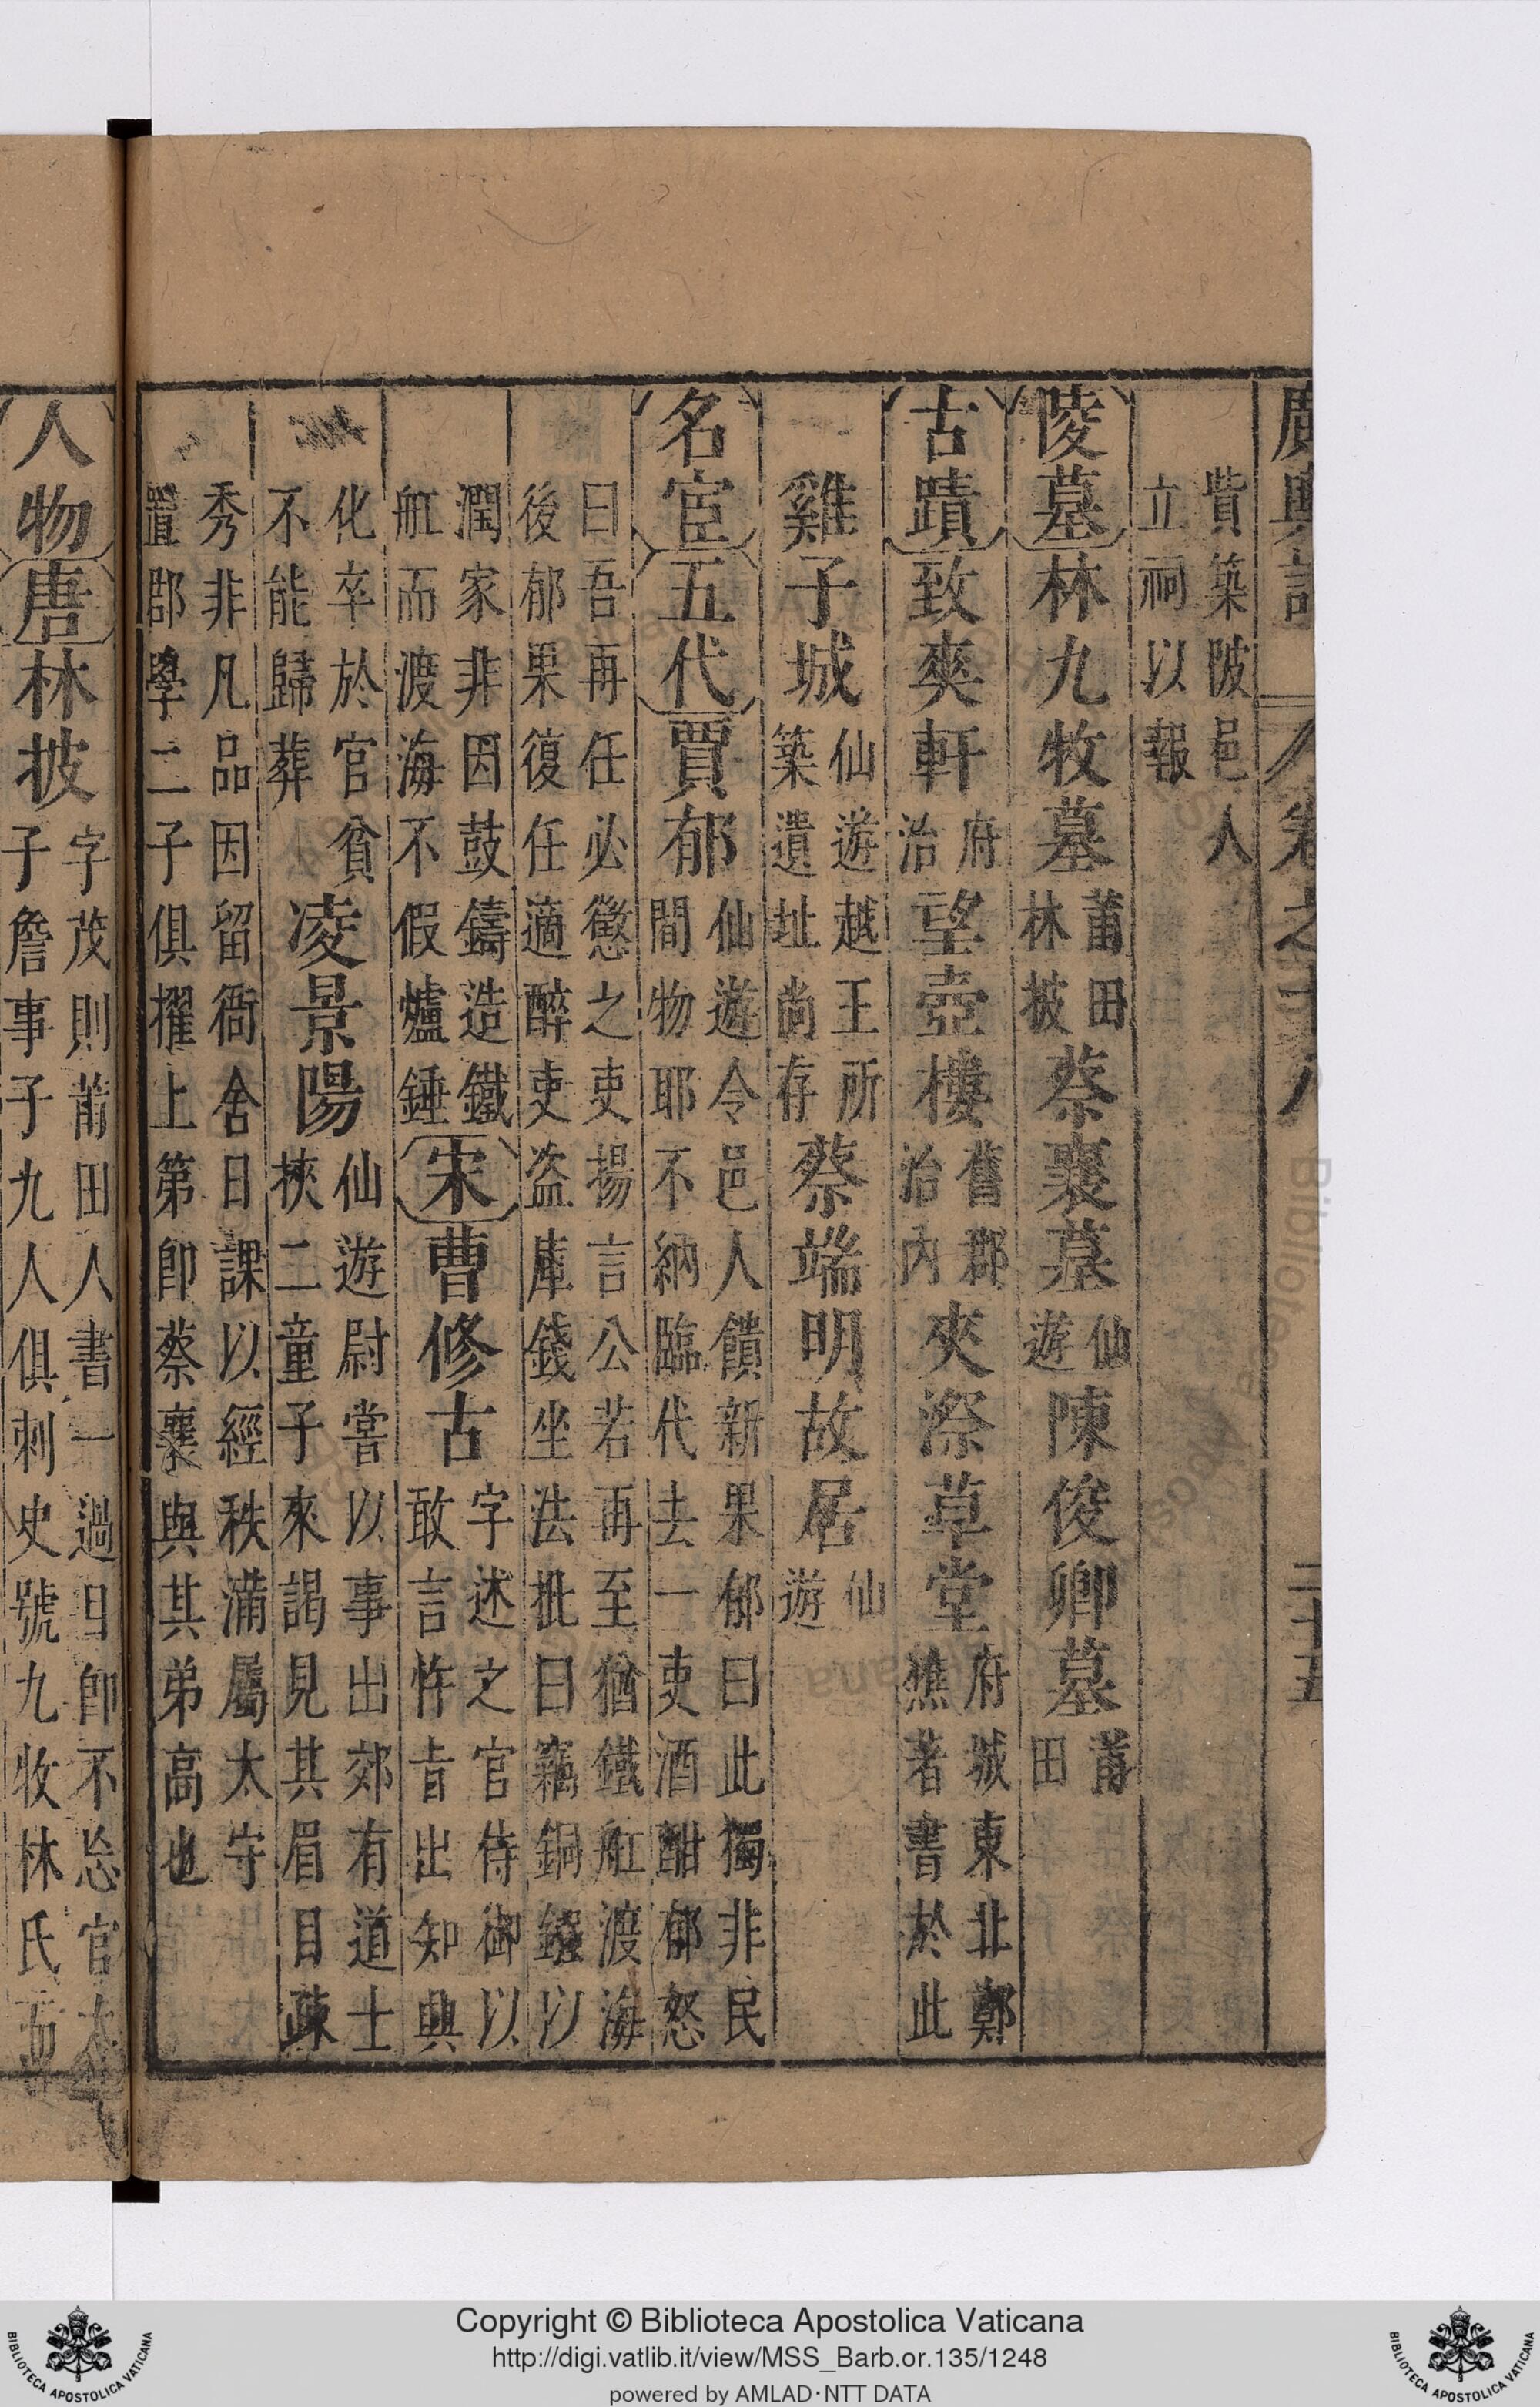 廣輿記 卷之十八 二十五
貲築陂邑人
立祠以報
陵墓林九牧墓莆田林披蔡襄墓仙遊陳俊卿墓莆田
古蹟致爽軒府治望壺樓舊郡治內夾漈草堂府城東北鄭樵著書於此
雞子城仙遊越王所築遺址尚存蔡端明故居仙遊
名宦五代賈郁仙遊令邑人饋新果郁曰此獨非民間物耶不納臨代去一吏酒酣郁怒
曰吾再任必懲之吏揚言公若再至猶鐵舡渡海
後郁果復任適醉吏盜庫錢坐法批曰竊銅鏹以
潤家非因鼓鑄造鐵
舡而渡海不假爐錘宋曹修古字述之官侍御以敢言忤㫖出知興
化卒於官貧
不能歸葬凌景陽仙遊尉嘗以事出郊有道士挾二童子來謁見其眉目疎
秀非凡品因留衙舍日課以經秩滿屬太守
置郡學二子俱擢上第卽蔡襄與其弟高也
人物唐林披字茂則莆田人書一過目卽不忘官太子詹事子九人俱刺史號九牧林氏
Copyright © Biblioteca Apostolica Vaticana
http://digi.vatlib.it/view/MSS_Barb.or.135/1248
powered by AMLAD·NTT DATA
BIBLIOTECA APOSTOLICA VATICANA
BIBLIOTECA APOSTOLICA VATICANA